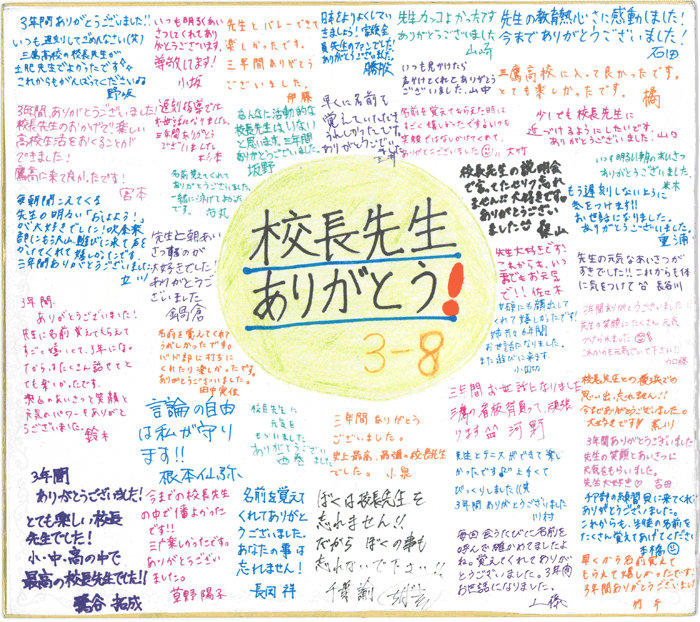 校長先生
ありがとう!
3-8
3年間ありがとうございました!!
いつも遅刻してごめんなさい(笑)
三鷹高校の校長先生が
土肥先生でよかったです
これからもがんばってくださいね
野坂
いつも明るくあい
さつしてくれてあり
がとうございます。
尊敬してます!
小坂
先生とバレーできて
楽しかったです。
三年間ありがとう
ございました。
伊藤
日本をよりよくしていき
ましょう!
ありがとうございました。
勝股
先生カッコよかったです
ありがとうございました
山崎
先生の教育熱心さに感動しました!
今までありがとうございました!
石田
いつも見かけたら
声かけてくれてありがとう
ございました。山中
三鷹高校に入って良かったです。
とても楽しかったです。
橘
3年間、ありがとうございました!
校長先生のおかげで楽しい
高校生活をおくることが
できました!
鷹高に来て良かったです!
宮本
遅刻指導で
お世話になりました。
三年間ありがとう
ございました
杉本
こんなに活動的な
校長先生はいない
と思います。三年間
ありがとうございました。
坂野
早くに名前を
覚えていただき
うれしかったです。
ありがとうございました。
名前を覚えてもらえた時は
すごく嬉しかったです。いつも
笑顔ではなしかけてくれて、
ありがとうございました 大竹
少しでも校長先生に
近づけるようにしたいです。
ありがとうございました。山口
いつも明るい朝のあいさつ
ありがとうございました。
米木
名前覚えてくれて
ありがとうございました。
校長先生の説明会
で言ってたセリフ忘れ
ません!!大好きです。
ありがとうござい
ました
もう遅刻しないように
気をつけます!!
お世話になりました。
ありがとうございました。
重浦
毎朝聞こえてくる
先生の明るい「おはよう!」
が大好きでした!吹奏楽
部にも
三年間ありがとうございました
立川
先生と朝あい
さつ
大好きでした!
ありがとうござ
いました
鍋倉
先生大好きです!
これからも、いつ
までもお元気
で!!佐々木
先生の元気なあいさつが
すきでした!!これからも体
に気をつけて 長谷川
お世話になりました。
また遊びに来ます
小田切
3年間ありがとうございました
先生の笑顔にたくさん元気
づけられました
これからも元気でいて下さい
加藤
3年間、
ありがとうございました!
先生に名前覚えてもらえて
すごく嬉しくて、3年になっ
てからはたくさん話せてと
ても楽しかったです。
元気のパワーをありがと
うございました。
鈴木
名前を覚えてくれて
うれしかったです。
バド部に打ちに
くれたり楽しかったです。
ありがとうございました。
田中
言論の自由
は私が守り
ます!!
根本仙弥
校長先生に
元気を
もらいました
ありがとうございました
西巻
三年間ありがとう
ございました。
史上最高、最強の校長先生
でした。 小泉
三年間お世話になりました
三鷹の看板背負って、頑張
ります 河野
校長先生との
思い出、忘れません!!
今までありがとうございました。
大好きです 荒川
3年間ありがとうございました
先生の笑顔とあいさつに
元気をもらいました。
先生大好き 吉田
先生とテニスができて楽し
かったです 上手くて
びっくりしました(笑
3年間ありがとうございました
川村
練習見に来てくれて
ありがとうございました。
これからも、生徒の名前を
たくさん覚えてあげてください
本橋
3年間
ありがとうございました!
とても楽しい校長
先生でした!
小・中・高の中で
最高の校長先生でした!!
鷺谷 拓成
今までの校長先生
の中で1番よかったで
す!!
三年楽しかったです。
ありがとうござい
ました。
草野 陽子
名前を覚えて
くれてありがと
うございました。
あなたの事は
忘れません!
長岡 祥
ぼくは校長先生を
忘れません!!
だから ぼくの事も
忘れないで下さい!!
千葉
毎回会うたびに名前を
呼んで確かめてました
ね。覚えてくれてありが
とうございました。3年間
お世話になりました。
早くから名前覚えて
もらえて嬉しかったです!
3年間ありがとうございました
竹下